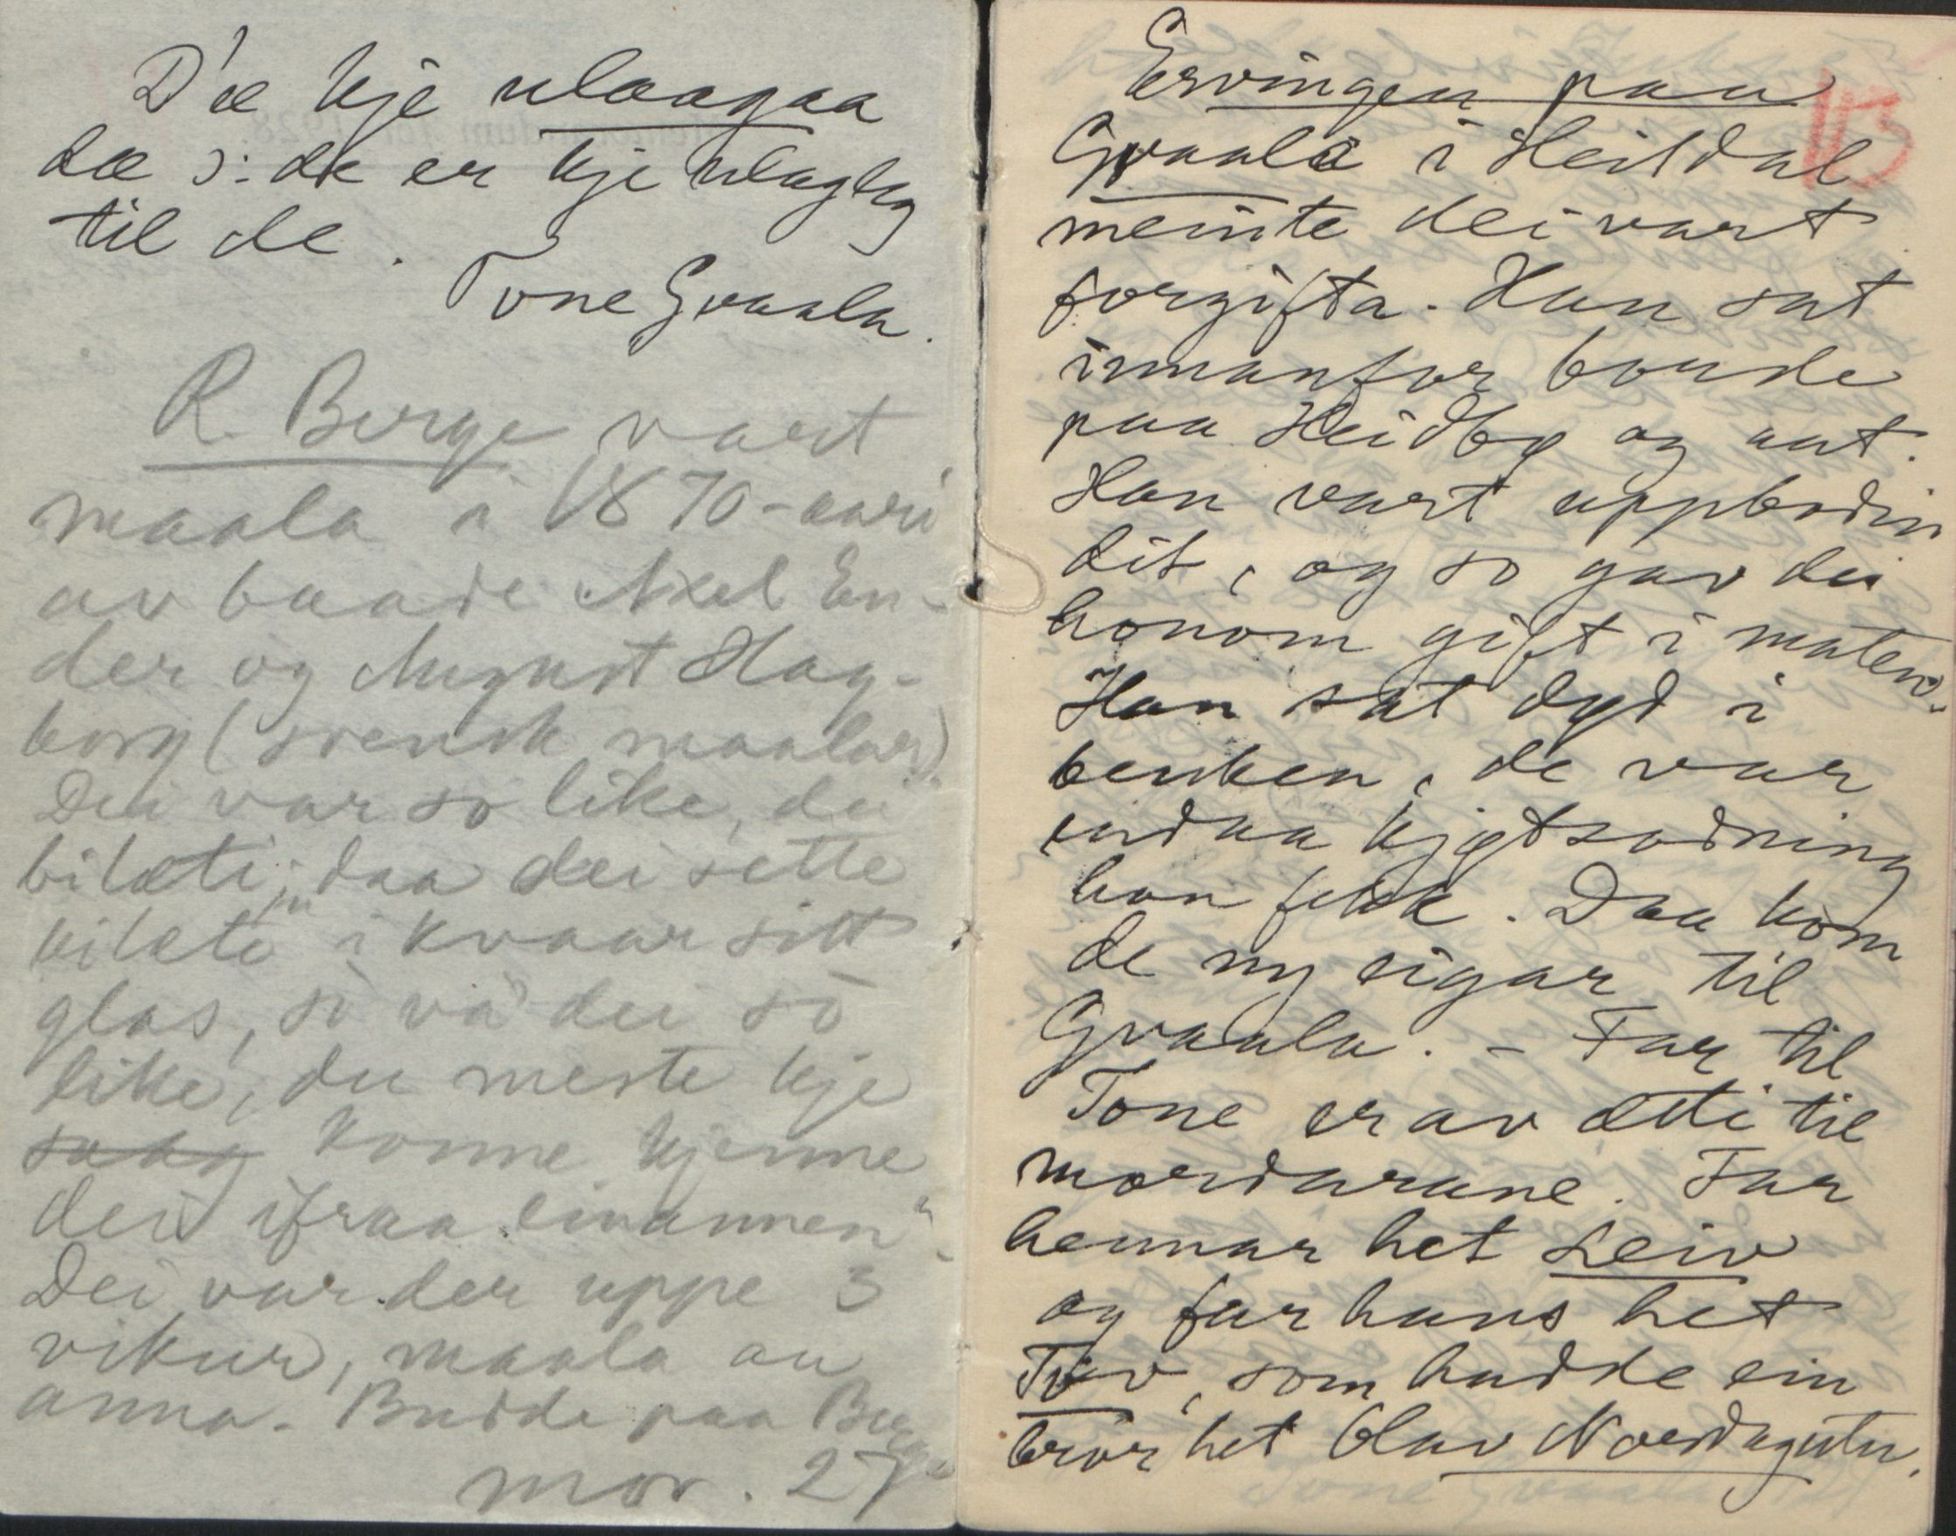 D'æ kje ulaagaa
dæ ɔ: dæ er kje ulagleg
til de.
Tone Gvaala.
R. Berge vart
maala i 1870-aari
av baade Axel En-
der og August Hag-
borg (svensk maalar)
Dei var so like, dei
bilæti; daa dei sette
bilæte i kvaar sitt
glas, so va dei so
like, du meste kje
konne kjenne
dei ifraa einannen".
Dei var der uppe 3
vikur, maala au
anna. Budde paa Berge
mor. 27
113
Ervingen paa
Gvaala i Heitdal
meinte dei vart
forgifta. Han sat
innanfor borde
paa Heidbø og aat.
Han vart uppbodin
dit, og so gav dei
honom gift i maten.
Han sat dyd i
benken, de var
endaa kjøtsodning
han fekk. Daa kom
de ny eigar til
Gvaala. - Far til
Tone er av ætti til
mordarane. Far
hennar het Leiv
og far hans het
Tov, som hadde ein
bror het Olav Nordagutu.